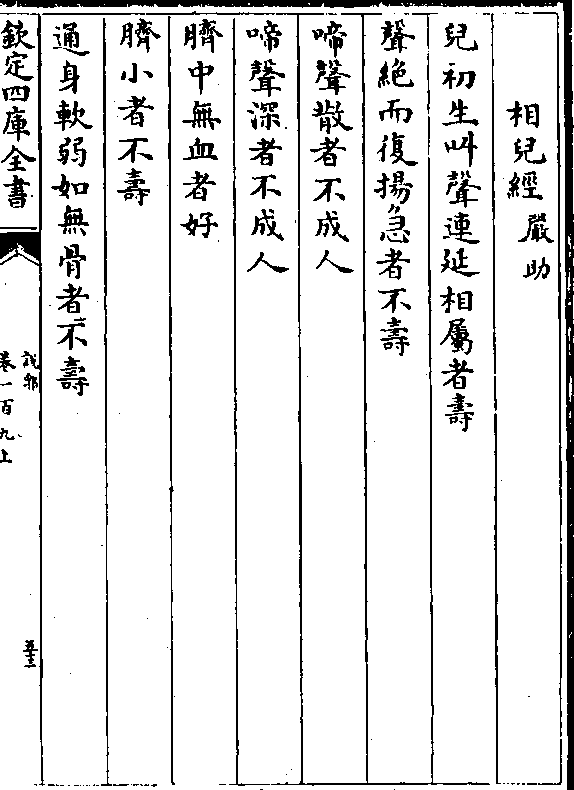 相兒經 嚴助
兒初生叫聲連延相屬者壽
聲絶而復揚急者不壽
啼聲散者不成人
啼聲深者不成人
臍中無血者好
臍小者不壽
通身軟弱如無骨者不壽
欽定四庫全書
說郛
卷一百九上